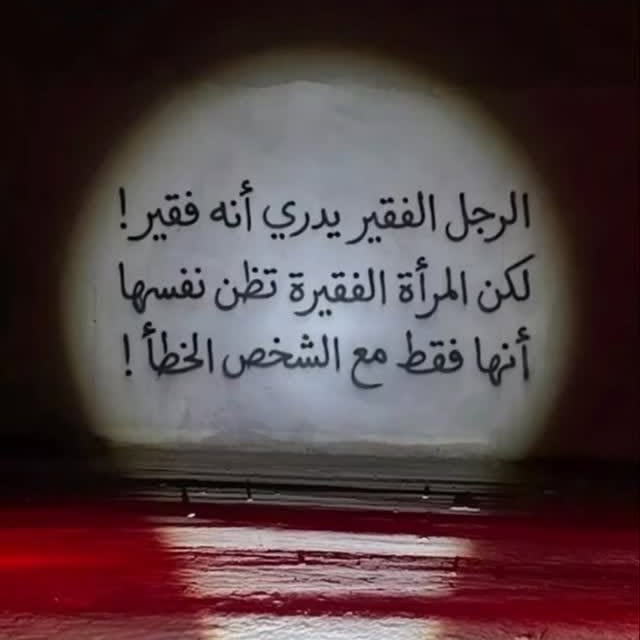 الرجل الفقير يدري أنه فقير !
لكن المرأة الفقيرة تظن نفسها
أنها فقط مع الشخص الخطأ !